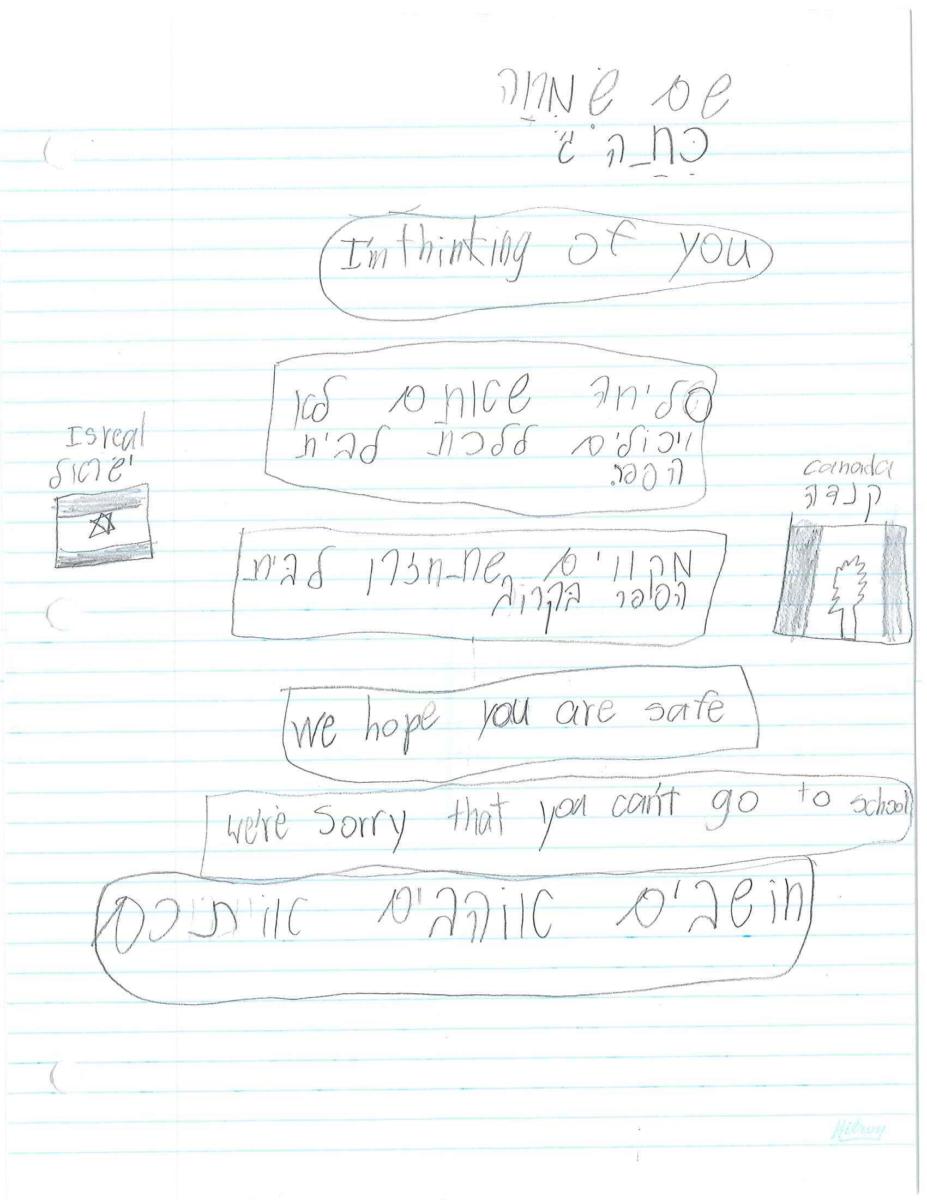 שם שמחה
כתה ג'
I'm thinking of you
סליחה שאותם לא
ויכולים ללכת לבית
הספר.
Isreal
ישראל
canada
קנדה
מקווים שתחזרו לבית
הספר בקרוב
we hope you are safe
we're Sorry that you can't go to school
חושבים אוהבים אותכם
Hilroy